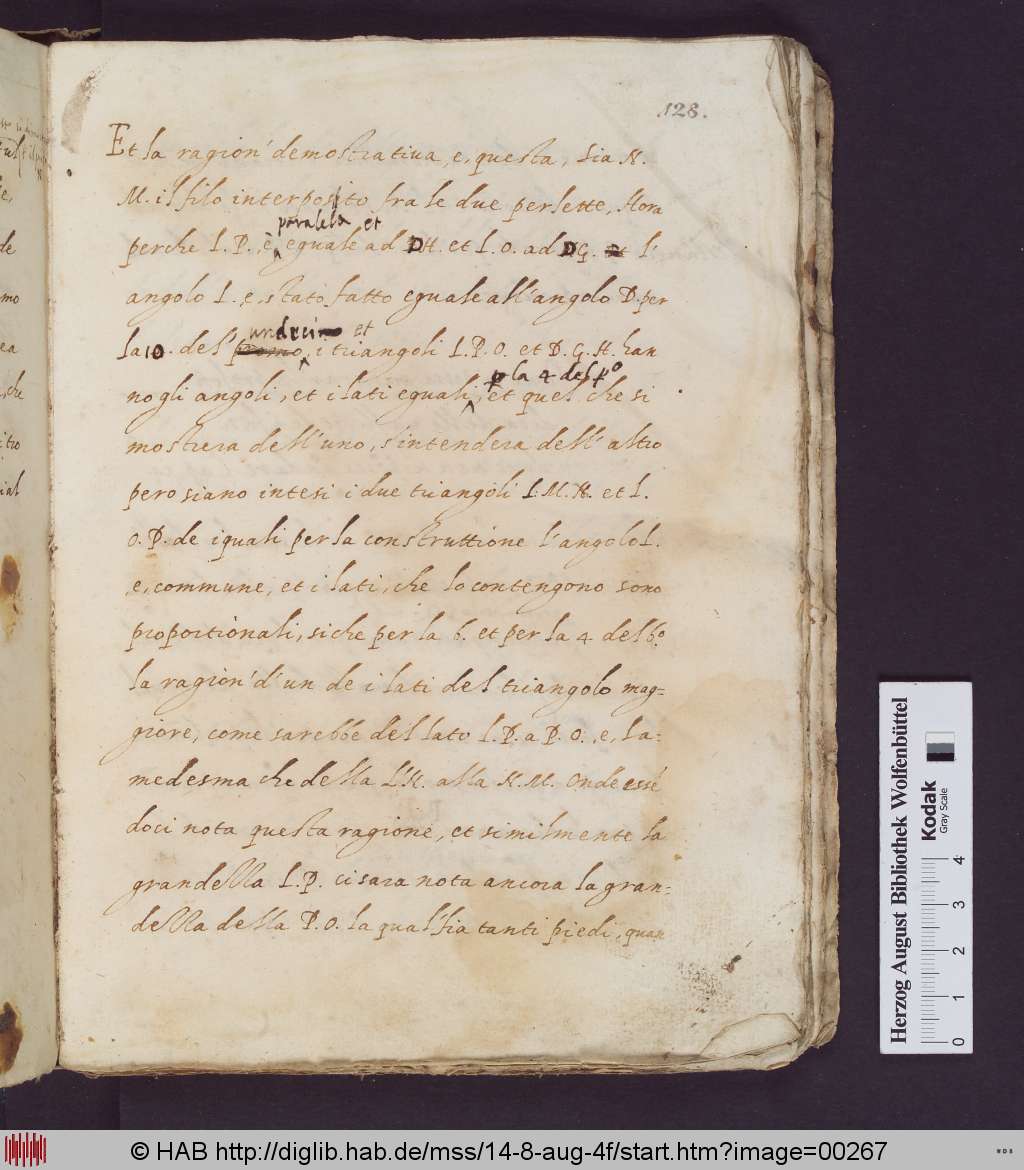 128.
Et la ragion' demostratiua, e, questa, sia N.
M. il filo interposito fra le due perlette, Hora
paralela et
perche I. P. è eguale ad DH. et I. O. ad DG. et l'
angolo I. e, stato fatto eguale all'angolo D. per
undeci et
la 10. del' primo, i triangoli I. P. O. et D. G. H. han
p la 4 del po
no gli angoli, et i lati eguali, et quel che si
mostrera dell'uno, s'intendera dell'altro
pero siano intesi i due triangoli I. M. N. et I.
O. P. de iquali per la construttione l'angolo I.
e, commune, et i lati, che lo contengono sono
proportionali, siche per la 6. et per la 4 del 6o.
la ragion' d'un de i lati del triangolo mag=
giore, come sarebbe del lato I. P. a P. O. e, la
medesma che della I.N. alla N. M. Onde essē
doci nota questa ragione, et similmente la
grandezza I. P. ci sara nota ancora la gran=
dezza della P. O. la qual sia tanti piedi, quan
Herzog August Bibliothek Wolfenbüttel
Kodak
Gray Scale
0 1 2 3 4
© HAB http://diglib.hab.de/mss/14-8-aug-4f/start.htm?image=00267